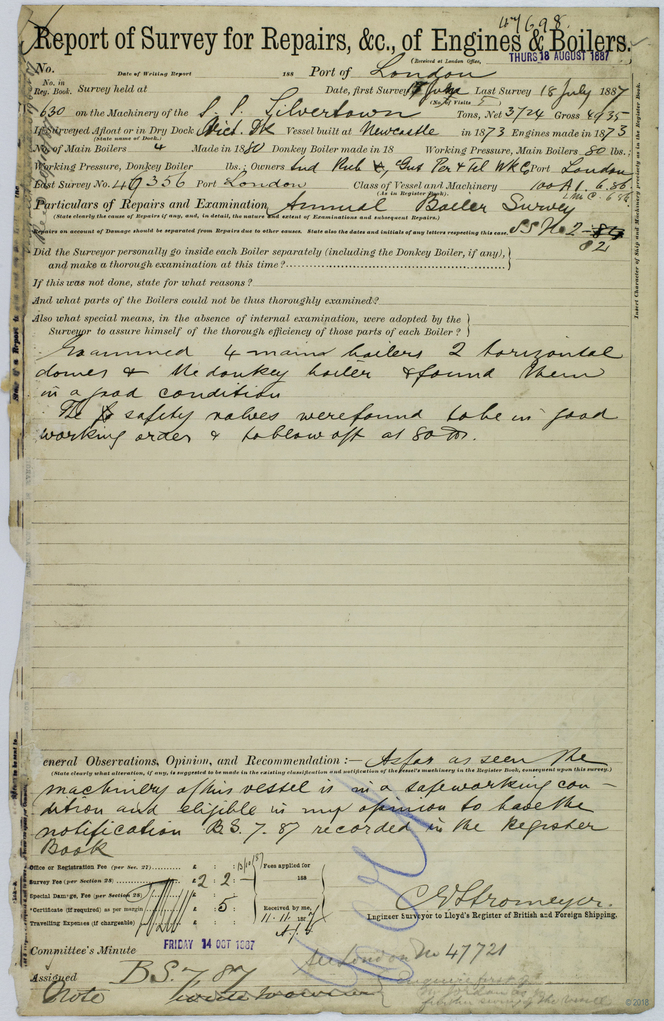 47698.
Report of Survey for Repairs, &c., of Engines & Boilers.
(Received at London Office,
THURS 18 AUGUST 1887
No.
Date of Writing Report 188 Port of London
No. in Reg. Book. Survey held at Date, first Survey July Last Survey 18 July 1887
(No. of Visits 5)
630 on the Machinery of the S. S. Silvertown Tons, Net 3724 Gross 4935
If Surveyed Afloat or in Dry Dock Vict. Dk Vessel built at Newcastle in 1873 Engines made in 1873
(State name of Dock.)
No. of Main Boilers 4 Made in 1880 Donkey Boiler made in 18 Working Pressure, Main Boilers 80 lbs.
Working Pressure, Donkey Boiler lbs.; Owners Ind Rub , Gut Per & Tel Wk C Port London
Last Survey No. 46356 Port London Class of Vessel and Machinery 100 A1. 6.86
(As in Register Book). LMC. 6 86
Particulars of Repairs and Examination Annual Boiler Survey
(State clearly the cause of Repairs if any, and, in detail, the nature and extent of Examinations and subsequent Repairs.)
Repairs on account of Damage should be separated from Repairs due to other causes. State also the dates and initials of any letters respecting this case. SS No 2 - 84
82
Did the Surveyor personally go inside each Boiler separately (including the Donkey Boiler, if any),
and make a thorough examination at this time?
If this was not done, state for what reasons?
And what parts of the Boilers could not be thus thoroughly examined?
Also what special means, in the absence of internal examination, were adopted by the
Surveyor to assure himself of the thorough efficiency of those parts of each Boiler?
Examined 4 main boilers 2 horizontal
domes & the donkey boiler & found them
in a good condition
The safety valves were found to be in good
working order & to blow off at 80 lbs.
eneral Observations, Opinion, and Recommendation:— As far as seen the
(State clearly what alteration, if any, is suggested to be made in the existing classification and notification of the vessel's machinery in the Register Book, consequent upon this survey.)
machinery of this vessel is in a safe working con-
dition and eligible in my opinion to have the
notification B.S. 7. 87 recorded in the Register
Book
Office or Registration Fee (per Sec. 27) £ : : Fees applied for
Survey Fee (per Section 28) £ 2 : 2 : — 188
Special Damage Fee (per Section 28) £ : :
*Certificate (if required) as per margin : 5 : Received by me,
Travelling Expenses (if chargeable) £ : : 11.11.1887
C E Stromeyer.
Engineer Surveyor to Lloyd's Register of British and Foreign Shipping.
Committee's Minute FRIDAY 14 OCT 1887
See London No 47721
Assigned B.S. 7 87
Note
Insert Character of Ship and Machinery precisely as in the Register Book.
© 2018